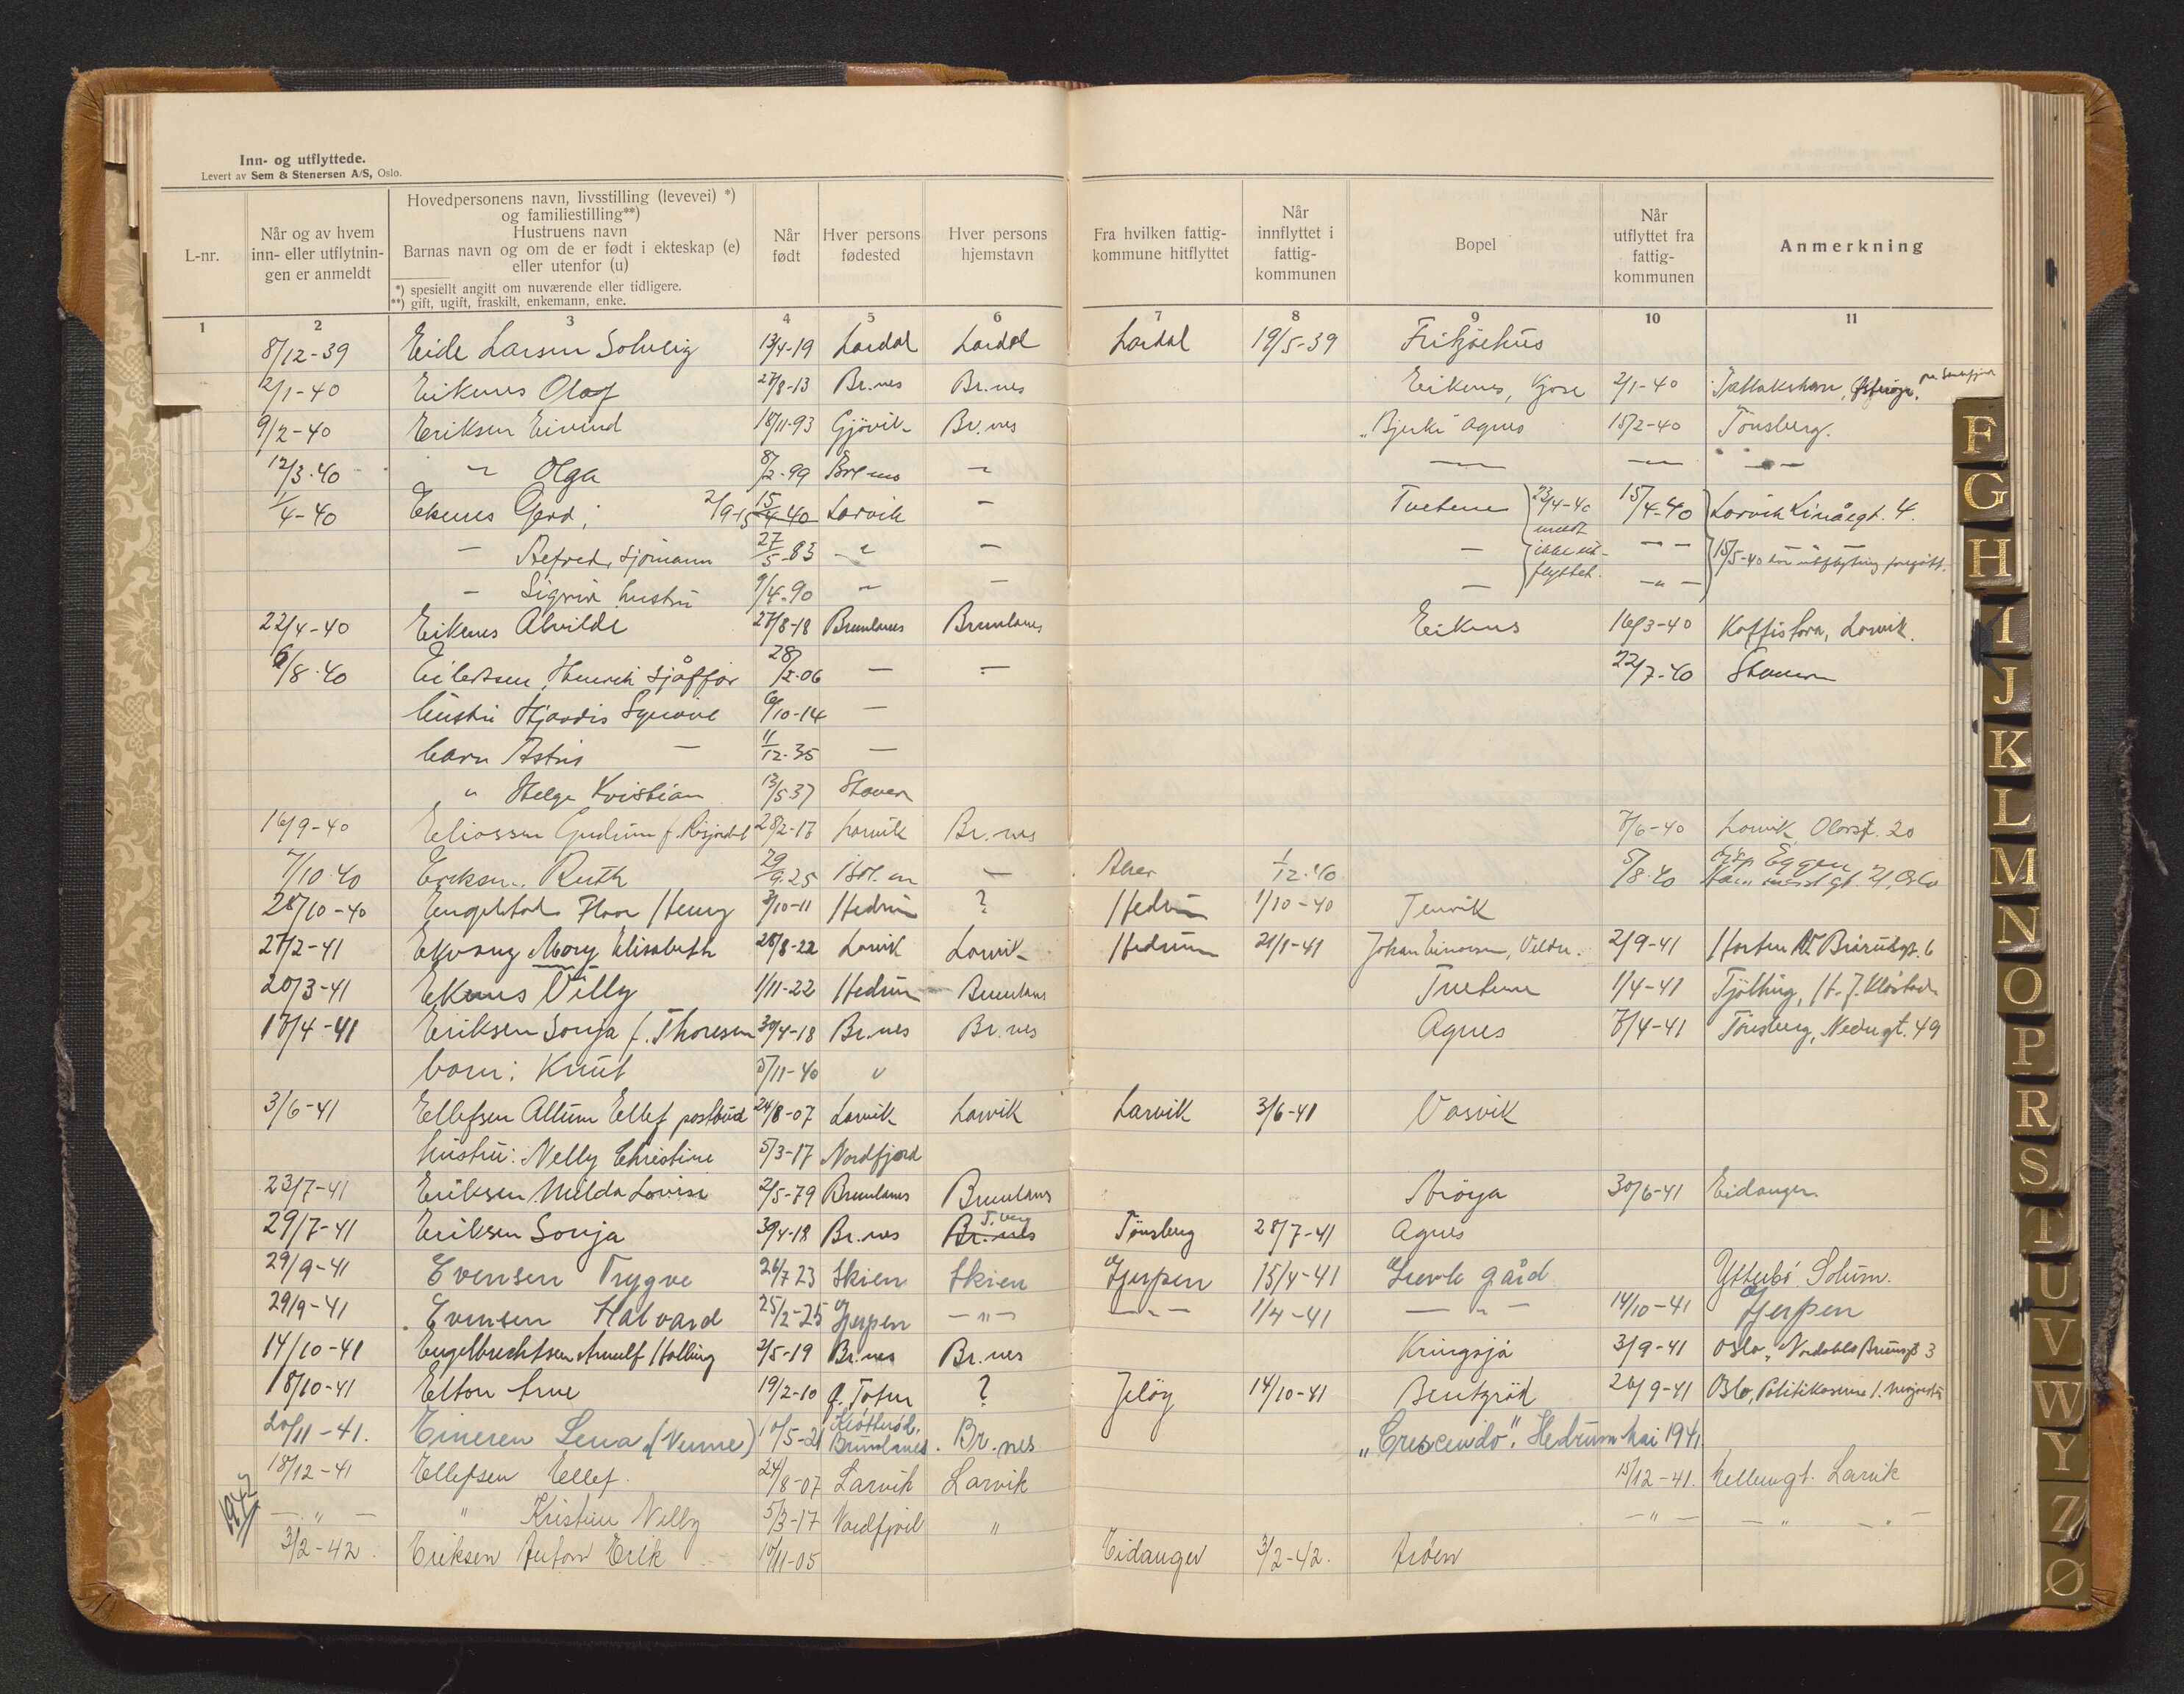 Inn- og utflyttede.
Levert av Sem & Stenersen A/S, Oslo.
L-nr. Når og av hvem inn- eller utflytnin-gen er anmeldt Hovedpersonens navn, livsstilling (levevei) *) og familiestilling**) Hustruens navn Barnas navn og om de er født i ekteskap (e) eller utenfor (u) *) spesiellt angitt om nuværende eller tidligere. **) gift, ugift, fraskilt, enkemann, enke. Når født Hver persons fødested Hver persons hjemstavn Fra hvilken fattig-kommune hitflyttet Når innflyttet i fattig-kommunen Bopel Når utflyttet fra fattig-kommunen Anmerkning
1 2 3 4 5 6 7 8 9 10 11
8/12-39 Eide Larsen Solveig 13/4-19 Lardal Lardal Lardal 19/5-39 Fritzöehus
2/1-40 Eikenes Olaf 27/8-13 Br.nes Br.nes Eikenes, Kjose 2/1-40
9/2-40 Eriksen Eivind 18/11-93 Gjövik Br.nes "Bjerke" Agnes 15/2-40 Tönsberg.
12/3-40 " Olga 8/2-99 — — — —
1/4-40 Ekenes Gerd; 2/9-15 15/4-40 Larvik — Tvetene 23/4-40 meldt ikke ut-flyttet. 15/4-40 Larvik 4.
— Alfred, sjömann 27/5-83 — — — — 15/5-40 har utflytning foregått.
— Sigrid hustru 9/4-90 — — — —
22/4-40 Eikenes Alvilde 27/8-18 Brunlanes Brunlanes Eikenes 16/3-40 Kaffistova, Larvik.
6/8-40 Eilertsen, Henrik sjåffør 28/2-06 — — 22/7-40 Stavern
hustru Hjördis Synnöve 6/10-14 —
barn Astrid — 11/12-35 —
" Helge Kristian 13/5 37 Stavern
16/9-40 Eliassen Gudrun f. 28/2-17 Larvik Br.nes 7/6-40 Larvik, Olavsgt. 20
7/10-40 Eriksen, Ruth 29/9-25 — Aker 1/12-40 5/8-40 Eggen Oslo
28/10-40 Engelstad Henry 3/10-11 Hedrum ? Hedrum 1/10-40 Tenvik
27/2-41 Ekvang Mary Elisabeth 28/8-22 Larvik Larvik Hedrum 21/1-41 Johan Einarsen, 2/9-41 Horten 6
20/3-41 Ekenes Villy 1/11-22 Hedrum Brunlanes Tvetene 1/4-41 Tjölling,
17/4-41 Eriksen Sonja f. Thoresen 30/4-18 Br.nes Br.nes Agnes 7/4-41 Tönsberg, Nedregt. 49
barn: Knut 5/11-40 "
3/6-41 Ellefsen Allum Ellef postbud 24/8-07 Larvik Larvik Larvik 3/6-41 Vasvik
hustru: Nelly Christine 5/3-17 Nordfjord
23/7-41 Eriksen Milda Lovise 2/5-79 Brunlanes Brunlanes 30/6-41 Eidanger.
29/7-41 Eriksen Sonja 30/4-18 Br.nes Br.nes T.berg Tönsberg 28/7-41 Agnes
29/9-41 Evensen Trygve 26/7 23 Skien Skien Gjerpen 15/4-41 gård Solum.
29/9-41 Evensen Halvard 25/2-25 Gjerpen — " — — " — 1/4-41 — " — 14/10-41 Gjerpen
14/10-41 Engelbrechtsen Arnulf 2/5-19 Br.nes Br.nes Kringsjå 3/9-41 Oslo, Nordahl Brunsgt 3
18/10-41 Elton Arne 19/2-10 Ø. Toten ? Jelöy 14/10-41 Bentsröd 26/9-41 Oslo, Politikaserne
20/11-41. Eineren Lena (Venne) 10/5-21 Brunlanes. Br.nes "Crescendo". Hedrum mai 1941
18/12-41 Ellefsen Ellef. 24/8-07 Larvik Larvik 15/12-41. Larvik
1942
— " — " Kristine Nelly 5/3-17 Nordfjord " — " — — " — — " —
3/2-42. Eriksen Anton Erik 10/11-05 Eidanger 3/2-42. Aröen
F
G
H
I
J
K
L
M
N
O
P
R
S
T
U
V
W
Y
Z
Ø